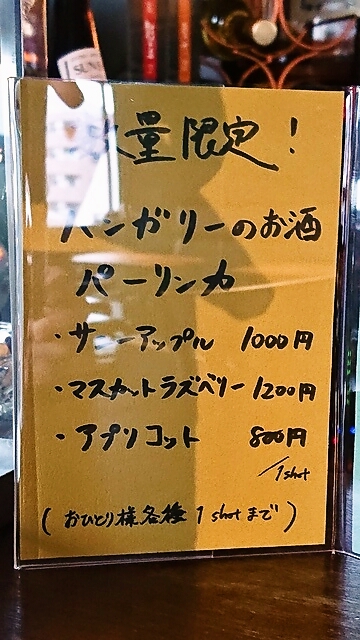 数量限定!
ハンガリーのお酒
パーリンカ
・サワーアップル 1000円
・マスカットラズベリー 1200円
・アプリコット 800円
/1shot
(おひとり様各種1shotまで)